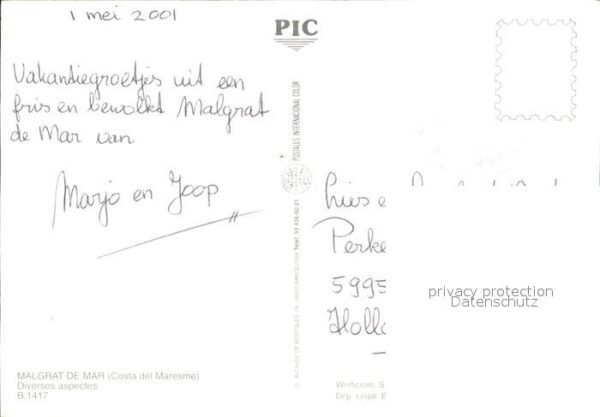 1 mei 2001
PIC
Vakantiegroetjes uit een
fris en bewolkt Malgrat
de Mar van
Marjo en Joop
POSTALES INTERNACIONAL COLOR
Lies e
Perke
5995
Holl
privacy protection
Datenschutz
MALGRAT DE MAR (Costa del Maresme)
Diversos aspectes
B.1417
Dep. Legal. B